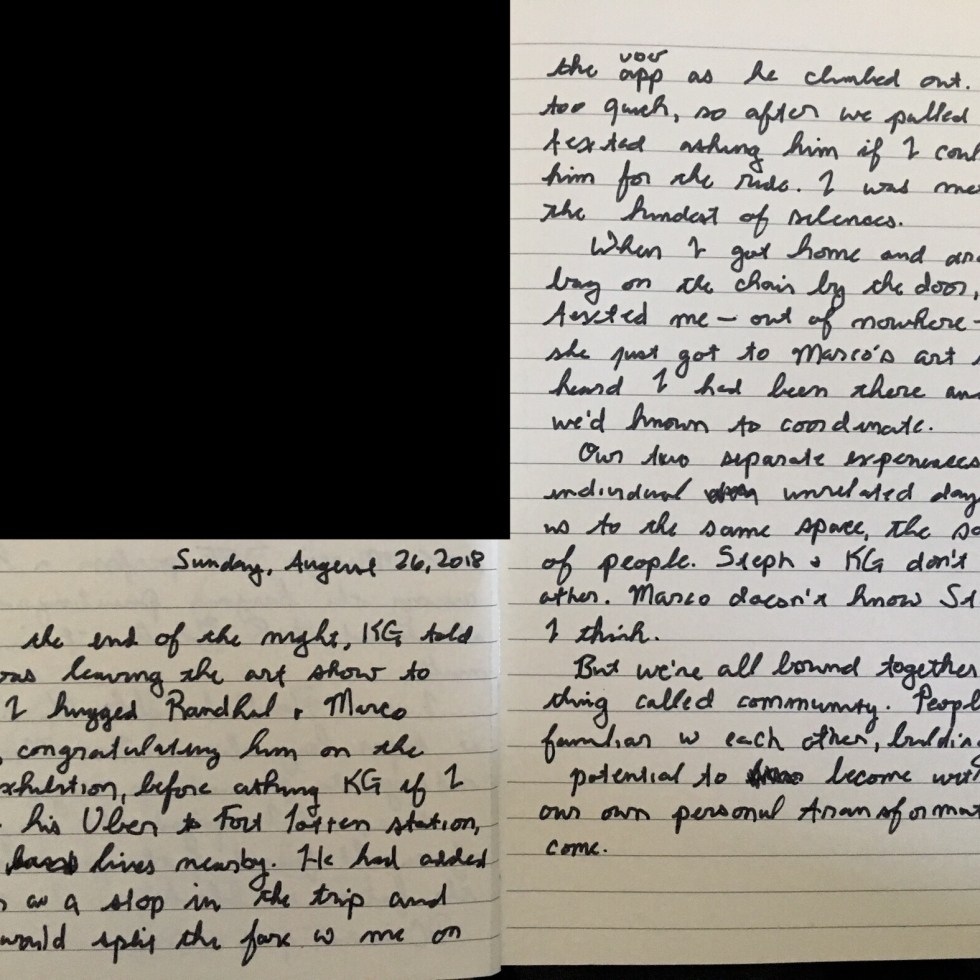 Sunday, August 26, 2018
the end of the night, KG told
was leaving the art show to
I hugged Randhal & Marco
, congratulating him on the
exhibition, before asking KG if I
his Uber to Fort Totten station,
lives nearby. He had added
as a stop in the trip and
would split the fare w me on
the uber app as he climbed out.
too quick, so after we pulled
texted asking him if I coul
him for the ride. I was me
the kindest of silences.
When I got home and
bag on the chair by the door,
texted me - out of nowhere -
she just got to Marco's art
heard I had been there an
we'd known to coordinate.
Our two separate experiences
individual unrelated day
us to the same space, the sa
of people. Steph & KG don't
other. Marco doesn't know St
I think.
But we're all bound together
thing called community. Peopl
familiar w each other, buildin
potential to become
our own personal transformat
come.